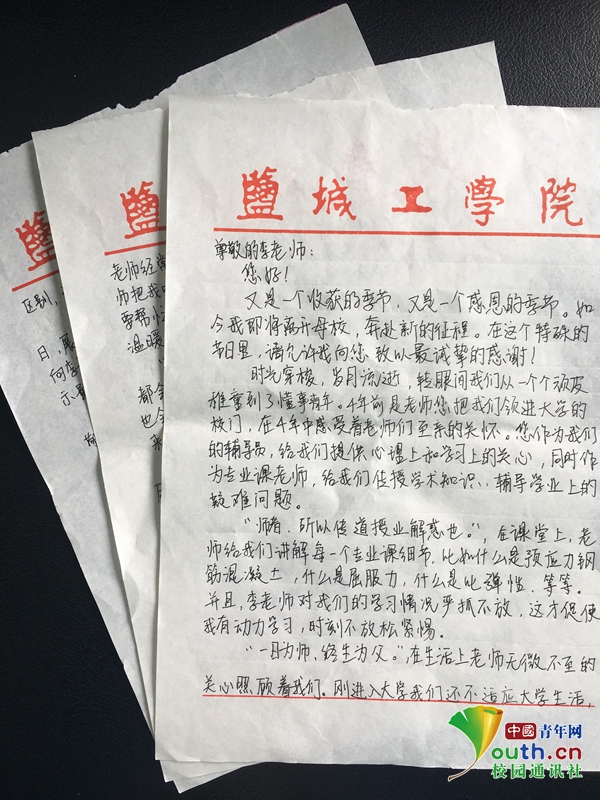 鹽城工学院
尊敬的李老师：
您好！
又是一个收获的季节，又是一个感恩的季节。如
今我即将离开母校，奔赴新的征程。在这个特殊的
节日里，请允许我向您致以最诚挚的感谢！
时光穿梭，岁月流逝，转眼间我们从一个个顽皮
稚童到了懂事青年。4年前是老师您把我们领进大学的
校门，在4年中感受着老师们至系的关怀。您作为我们
的辅导员，给我们提供心理上和学习上的关心，同时作
为专业课老师，给我们传授学术知识、辅导学业上的
疑难问题。
“师者，所以传道授业解惑也。”，在课堂上，老
师给我们讲解每一个专业课细节，比如什么是预应力钢
筋混凝土，什么是屈服力，什么是比弹性，等等。
并且，李老师对我们的学习情况严抓不放，这才促使
我有动力学习，时刻不放松紧惕。
“一日为师，终生为父。”，在生活上老师无微不至的
关心照顾着我们。刚进入大学我们还不适应大学生活，
鹽
老师经常
师把我
季帮忙
温暖
都会
也会
鹽
区别，
日，
向李
示最
中國青年网
youth.cn
校园通讯社